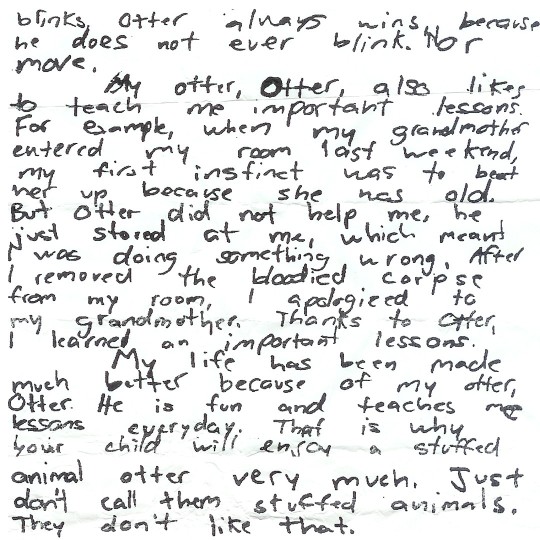 blinks, Otter always wins, because
he does not ever blink. Nor
move.
My otter, Otter, also likes
to teach me important lessons.
For example, when my grandmother
entered my room last weekend,
my first instinct was to beat
her up because she was old.
But Otter did not help me, he
just stared at me, which meant
I was doing something wrong. After
I removed the bloodied corpse
from my room, I apologized to
my grandmother. Thanks to Otter,
I learned an important lessons.
My life has been made
much better because of my otter,
Otter. He is fun and teaches me
lessons everyday. That is why
your child will enjoy a stuffed
animal otter very much. Just
don't call them stuffed animals.
They don't like that.